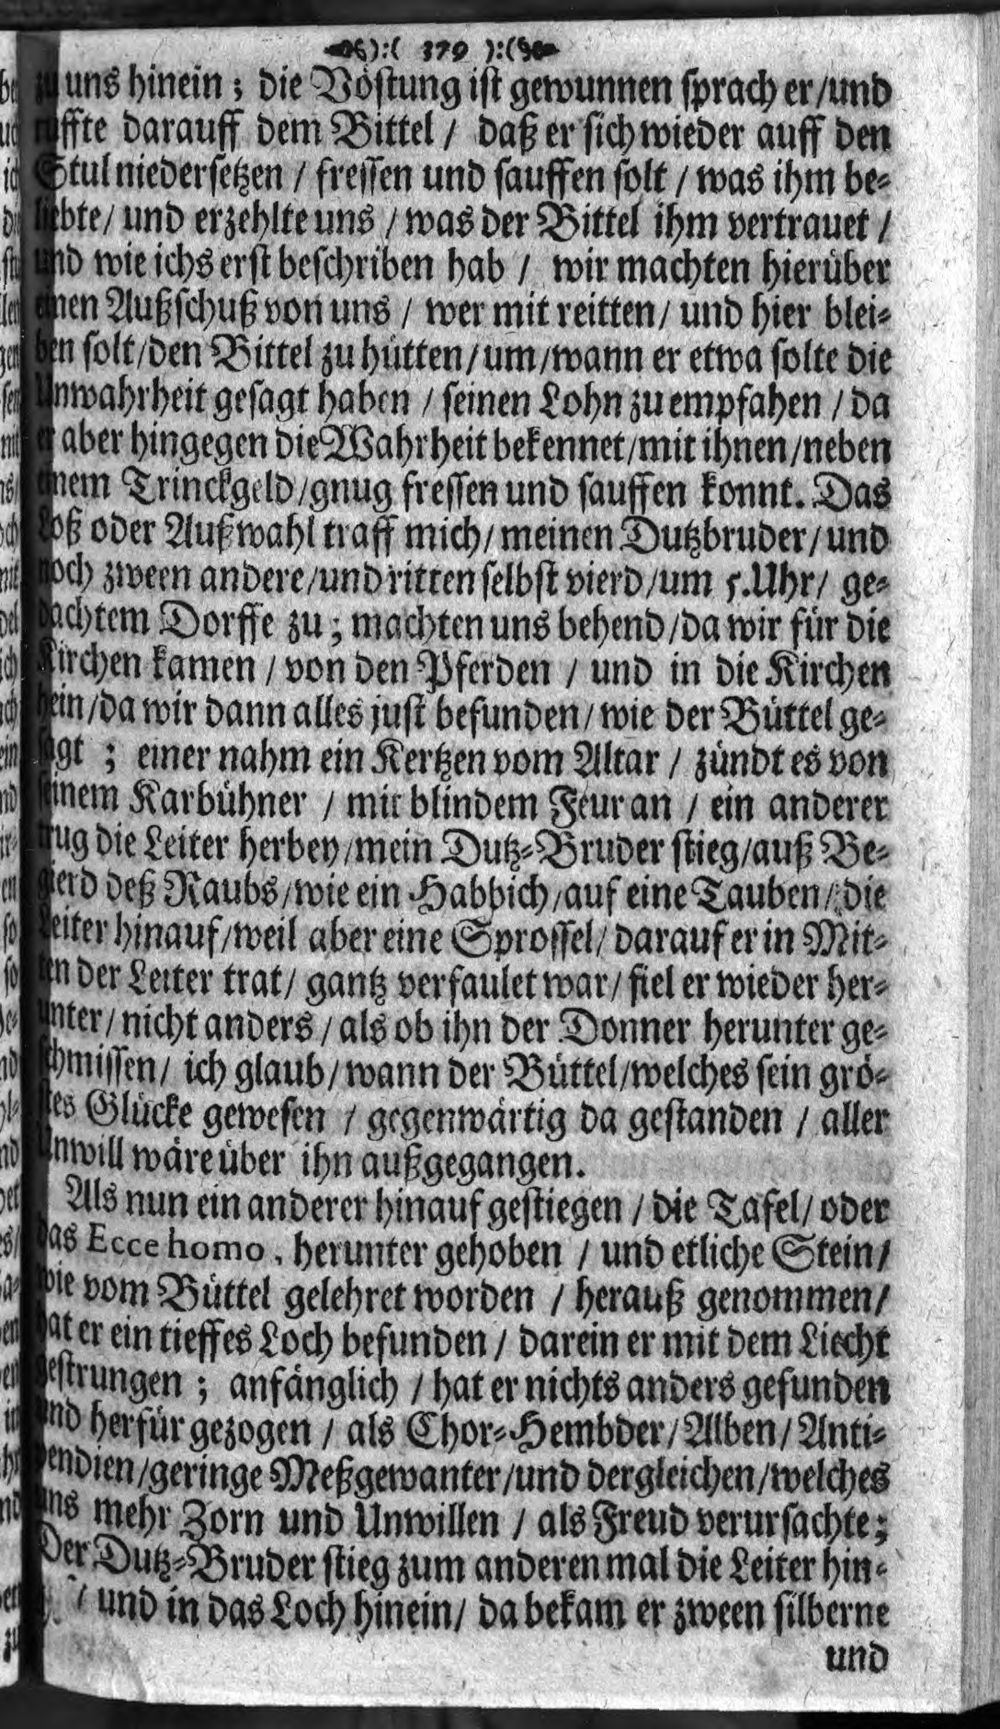 ):( 379 ):(
zu uns hinein ; die Vöstung ist gewunnen sprach er/und
ruffte darauff dem Bittel / daß er sich wieder auff den
Stul niedersetzen / fressen und sauffen solt / was ihm be-
liebte/ und erzehlte uns / was der Bittel ihm vertrauet /
und wie ichs erst beschriben hab / wir machten hierüber
einen Außschuß von uns / wer mit reitten/ und hier blei-
ben solt/den Bittel zu hütten/um/wann er etwa solte die
Unwahrheit gesagt haben / seinen Lohn zu empfahen / da
er aber hingegen die Wahrheit bekennet/mit ihnen/neben
einem Trinckgeld/gnug fressen und sauffen konnt. Das
Loß oder Außwahl traff mich/ meinen Dutzbruder/ und
noch zween andere/und ritten selbst vierd/um 5.Uhr/ ge-
dachtem Dorffe zu; machten uns behend/da wir für die
Kirchen kamen / von den Pferden / und in die Kirchen
hein/da wir dann alles just befunden/ wie der Büttel ge-
sagt ; einer nahm ein Kertzen vom Altar / zündt es von
seinem Karbühner / mit blindem Feur an / ein anderer
trug die Leiter herbey/mein Dutz-Bruder stieg/auß Be-
gierd deß Raubs/wie ein Habbich/auf eine Tauben/ die
Leiter hinauf/weil aber eine Sprossel/ darauf er in Mit-
ten der Leiter trat/ gantz verfaulet war/ fiel er wieder her-
unter/ nicht anders / als ob ihn der Donner herunter ge-
schmissen/ ich glaub/ wann der Büttel/welches sein grö-
stes Glücke gewesen / gegenwärtig da gestanden / aller
Unwill wäre über ihn außgegangen.
Als nun ein anderer hinauf gestiegen / die Tafel/ oder
das Ecce homo, herunter gehoben / und etliche Stein/
wie vom Büttel gelehret worden / herauß genommen/
hat er ein tieffes Loch befunden / darein er mit dem Liecht
gestrungen ; anfänglich / hat er nichts anders gefunden
und herfür gezogen / als Chor-Hembder/ Alben/ Anti-
pendien/geringe Meßgewanter/und dergleichen/welches
uns mehr Zorn und Unwillen / als Freud verursachte;
Der Dutz-Bruder stieg zum anderen mal die Leiter hin-
/ und in das Loch hinein/ da bekam er zween silberne
und